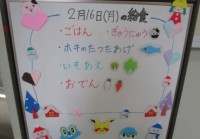 2月16日(月)の給食
・ごはん ・ぎゅうにゅう
・ホキのたつたあげ
・いそあえ
・おでん